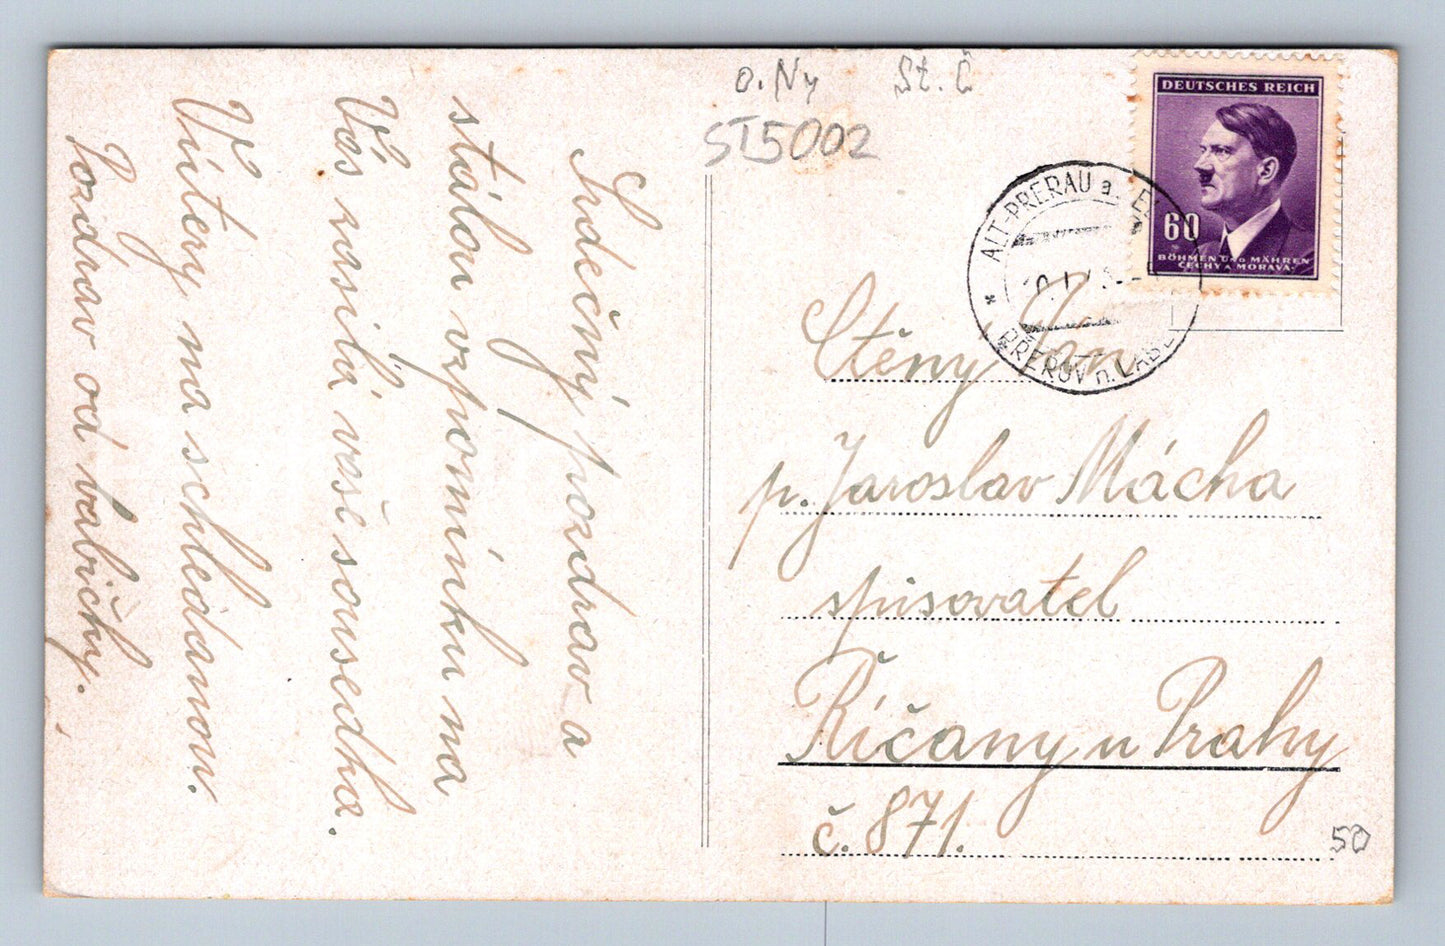 o. Ny St. Č
ST5002
DEUTSCHES REICH
60
BÖHMEN UND MÄHREN
ČECHY A MORAVA
ALT-PRERAU a.
PŘEROV n. LABE
Srdečný pozdrav a
stálou vzpomínku na
Vás zasílá vaše sousedka.
Vútery na schledanou.
Pozdrav od babičky.
Ctěný Pan
p. Jaroslav Mácha
spisovatel
Říčany u Prahy
č. 871.
50